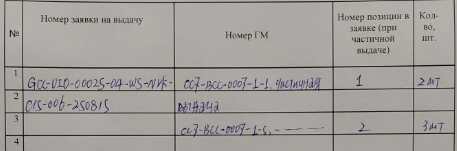 № Номер заявки на выдачу Номер ГМ Номер позиции в заявке (при частичной выдаче) Кол-во, шт.
1 GCC-UIO-00025-OA-WS-NVK- CC7-BCC-0007-1-1. частичная 1 2 шт
2 CIS-006-250815 выдача
3 CC7-BCC-0007-1-5. — — — — 2 3 шт
4